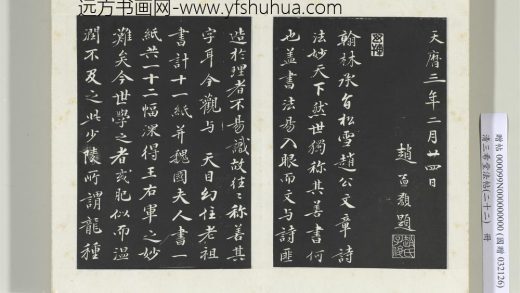 远方书画网-www.yfshuhua.com
天曆三年二月廿四日
趙孟頫題
翰林承旨松雪趙公文章詩
法妙天下然世獨稱其善書何
也蓋書法易入眼而文与詩匪
造於理者不易識故往〻稱善其
字耳今觀与天目幻住老祖
書計十一紙并魏國夫人書一
紙共一十二幅深得王右軍之妙
難矣今世學之者或肥似而温
潤不及之此少陵所謂龍種
贈帖 000099N000000000 (國贈 032126)
清三希堂法帖(二十二) 冊